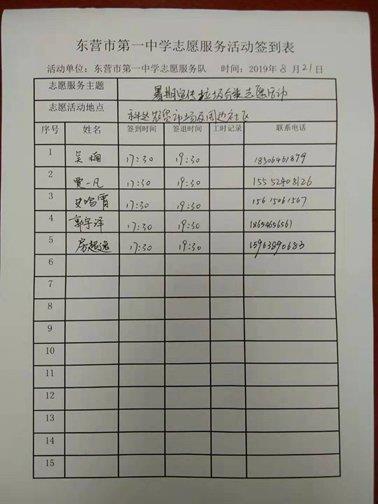 东营市第一中学志愿服务活动签到表
活动单位：东营市第一中学志愿服务队 时间：2019年8月21日
志愿服务主题 暑期宣传垃圾分类志愿活动
志愿活动地点 农贸市场及周边社区
序号 姓名 签到时间 签退时间 工时记录 联系电话
1 17:30 19:30
2 贾一凡 17:30 19:30 15552408126
3 17:30 19:30 15615061567
4 郭宇泽 17:30 19:30
5 17:30 19:30 15963890683
6
7
8
9
10
11
12
13
14
15